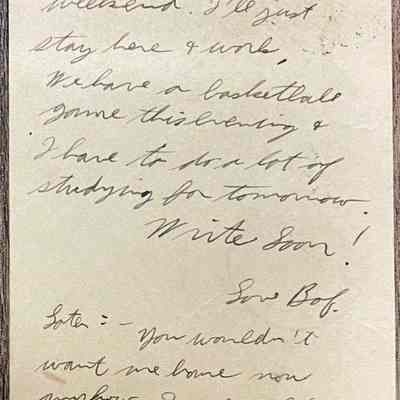 weekend. I'll just
stay here & work.
We have a basketball
game this evening &
I have to do a lot of
studying for tomorrow.
Write Soon!
Love Bob.
Later: - You wouldn't
want me home now
anyhow.